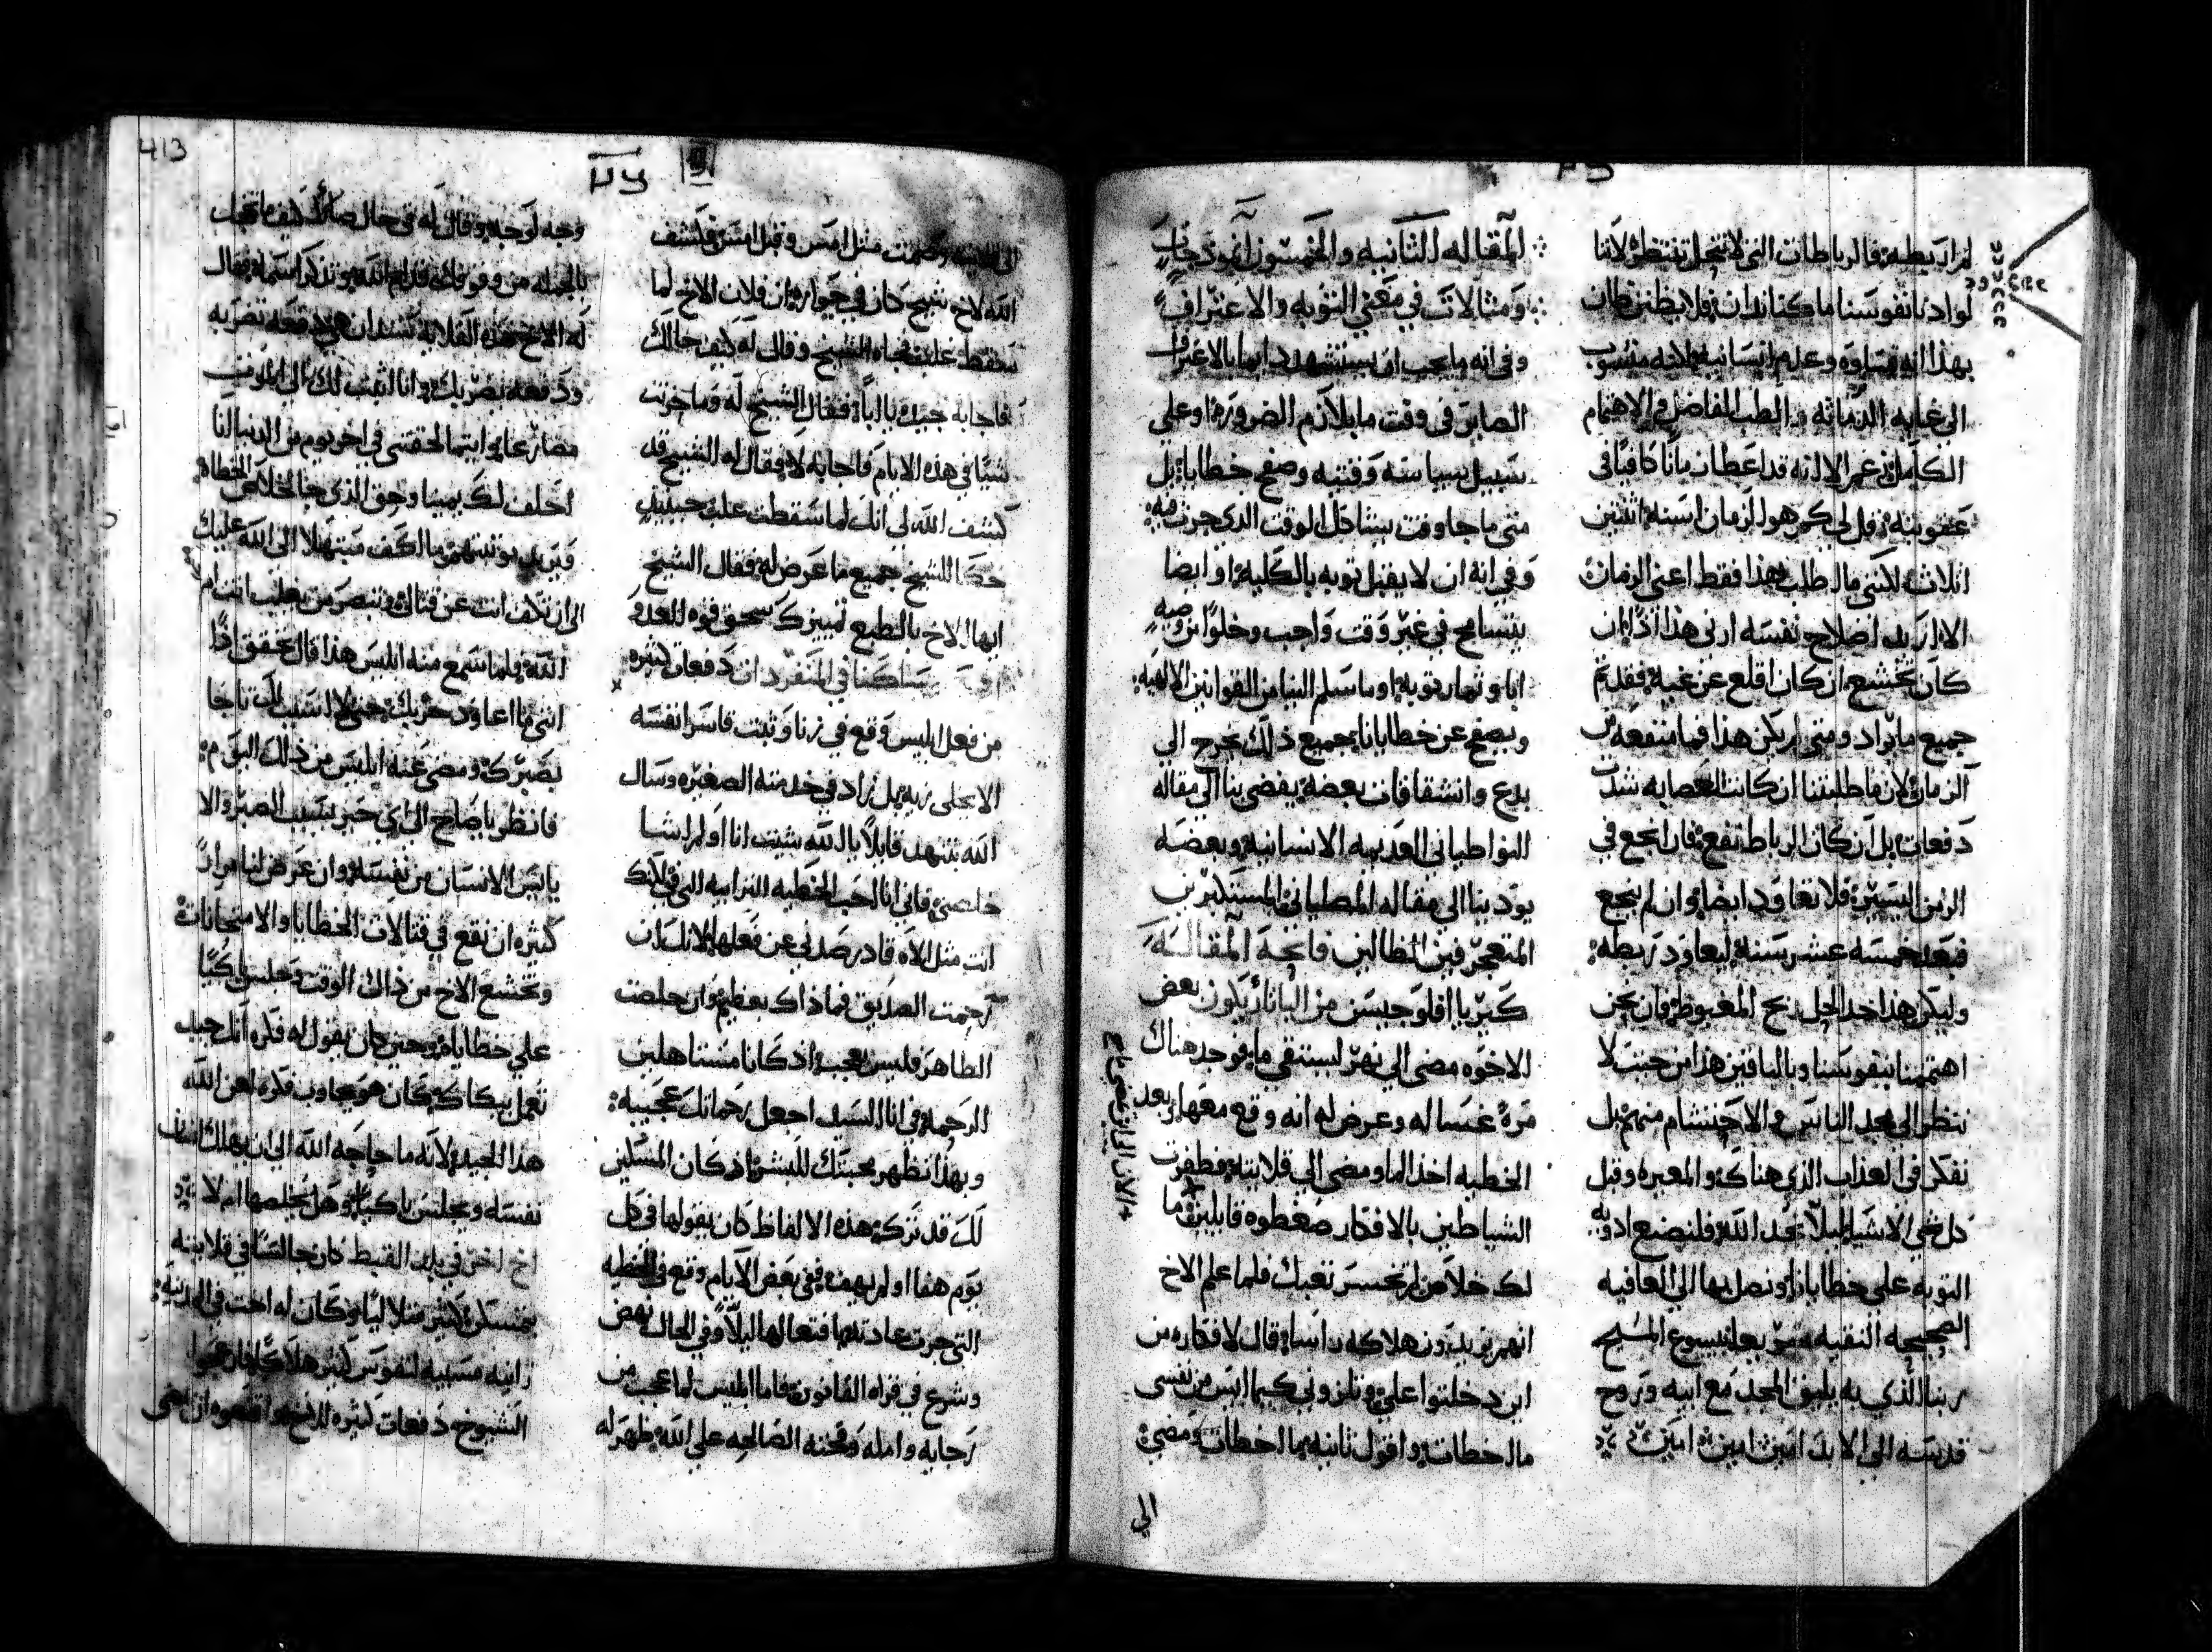 لم ارد يطبه فالرباطات التي لا تنحل تنتظر لاننا
لو ادنا نفوسنا ما كنا ندان فلا يظنن ظان
بهذا انه قساوه وعدم انسانيه لانه منسوب
الى غايه الدماثه والطب الفاضل والاهتمام
عقوبته قل لي كم هو الزمان اسنه اثنين
اثلاث لكنني ما اطلب هذا فقط اعني الزمان
الا اريد اصلاح نفسه ارني هذا اذا ان
كان تخشع ان كان اقلع عن غيه فقد تم
جميع ما يراد ومتى لم يكن هذا فما منفعه
الزمان لان ما طلبتنا ان كانت العصابه شدت
دفعات بل ان كان الرباط نفع فان انجع في
الزمن اليسير فلا تعاود ايضا وان لم ينجع
فبعد خمسه عشر سنه ليعاود ربطه
وليكن هذا حد الحل ربح المغبوط فان نحن
اهتممنا بنفوسنا وبالباقين هذا من حيث لا
ننظر الى مجد الناس والاحتشام منهم بل
نفكر في العذاب الذي هناك والمعيره وقبل
كل شي الاشياء ليلا نجد الله فلنصنع ادويه
التوبه على خطايانا ونصل بها الى العافيه
الصحيحه النقيه بيسوع المسيح
ربنا الذي به يليق المجد مع ابيه وروح
قدسه الى الابد امين امين امين
المقاله الثانيه والخمسون انموذجات
ومثالات في معني التوبه والاعتراف
وفي انه ما يجب ان يستشهد دايما بالاعتراف
الصاير في وقت ما يلازم الضروره وعلى
سبيل سياسه وقتيه وصفح خطايا بل
متى ما جا وقت يشاكل الوقت الذي جرت فيه
وفي انه ان لا يقبل توبه بالكليه او ايضا
يتسامح في غير وقت واجب وخلوا من وصيه
ابا وثمار توبه او ما سلم الينا من القوانين الالهيه
ويصفح عن خطايانا بجميع ذلك يخرج الى
بدع وانشقاقات بعضه يفضي بنا الى مقاله
النواطياني العديمه الانسانيه وبعضه
يودينا الى مقاله المصليانى المستكبرين
المتعجرفين الظالمين فاتحة المقالة
كيريا افلوجيسن من البانا يكون بعض
الاخوه مضى الى نهر ليستقي ما فوجد هناك
مرة غساله وعرض له انه وقع معها وبعد
الخطيه اخذ الما ومضى الى قلايته فطفرت
الشياطين بالافكار ضغطوه قايلين ما
لك خلاص لم تخسر تعبك فلما علم الاخ
انهم يريدون هلاكه راسا قال لافكاره من
اين دخلتوا علي وتلزوني كيما ايس من نفسي
ما اخطات واقول ثانيه ما اخطات ومضى
الي
413
الى قلايته وصمت مثل امس وقبل امس فكشف
الله لاخ شيخ كان في جواره ان فلان الاخ لما
سقط غلب فجاه الشيخ وقال له كيف حالك
فاجابه جيد يا ابا فقال الشيخ له وما حزنت
شيا في هذه الايام فاجابه لا فقال له الشيخ قد
كشف الله لي انك لما سقطت غلبت حينيذ
حكا للشيخ جميع ما عرض له فقال الشيخ
ايها الاخ بالطبع تمييزك سحق قوه العدو
ساكنا في المنفرد ان دفعات كثيره
من فعل ابليس وقع في زنا وثبت قاسرا نفسه
الا يخلي زيه بل زاد في خدمته الصغيره وسال
الله بتنهد قايلا يا الله شيت انا او لم اشا
خلصني فاني انا احب الخطيه الترابيه التي فلانك
انت مثل الاه قادر صدني عن فعلها لانك ان
رحمت الصديق فما ذاك بعظيم وان خلصت
الطاهر فليس بعجب اذ كانا مستاهلين
الرحمه في انا السيد اجعل رحمانك عجيبه
وبهذا تظهر محبتك للبشر اذ كان المسكين
لك قد تركه هذه الالفاظ كان يقولها في كل
يوم هفا او لم يهف ففي بعض الايام وقع في الخطيه
التي جرت عادته بافتعالها ليلا وفي الحال نهض
وشرع في قراه القانون فاما ابليس لما عجب من
رجايه وامله وقحته الصالحه على الله ظهر له
وجه لوجه وقال له في حال صلاتك كيف ما تخجل
بالجمله من وقوفك قدام الله وتذكر اسمه فقال
له الاخ هذه القلايه سندان هي دفعه تضربه
ودفعه يضربك وانا اثبت لك الى الموت
مصارعا ايتما لحقتني في اخر يوم من الدنيا انا
احلف لك يمينا وحق الذي جا لخلاص الخطاه
الى ان تكف انت عن قتالي وننصر من يغلب انت ام
الله فلما سمع منه ابليس هذا قال بحقق اذا
انني ما اعاود حربك حتى لا اسبب لك تاجا
بصبرك ومضى عنه ابليس من ذلك اليوم
فانظر يا صاح الى اي خير يسبب الصبر والا
يايس الانسان من نفسه وان عرض لنا مرارا
كثيره ان نقع في قتالات الخطايا والامتحانات
وتخشع الاخ من ذلك الوقت وجلس باكيا
على خطاياه وحين كان يقول له فكره انك جيد
تعمل ببكاك كان هو يجاوب فكره لعن الله
هذا الجيد لانه ما حاجه الله الى ان يهلك انسان
نفسه ويجلس باكيا وهل يخلصها ام لا
اخ اخر في بلد القبط كان جالسا في قلايته
بتمسكن كثير متلاليا وكان له اخت في المدينه
زانيه مسببه لنفوس كثير هلاكا
الشيوخ دفعات كثيره للاخ واقنعوه ان يمضي